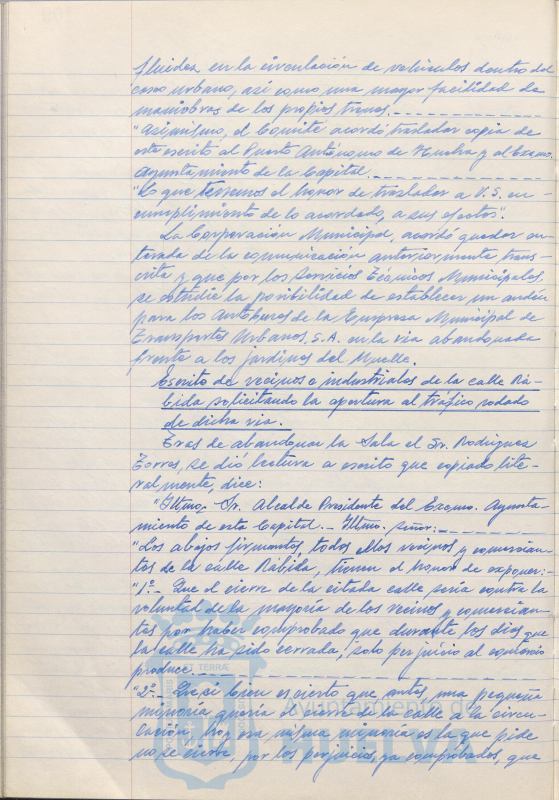 fluidez en la circulación de vehículos dentro del
casco urbano, así como una mayor facilidad de
maniobras de los propios trenes.
"Asimismo, el Comité acordó trasladar copia de
este escrito al Puerto Autónomo de Huelva y al Excmo.
Ayuntamiento de la Capital.
"Lo que tenemos el honor de trasladar a V.S. en
cumplimiento de lo acordado, a sus efectos".
La Corporación Municipal, acordó quedar en-
terada de la comunicación anteriormente trans-
crita y que por los Servicios Técnicos Municipales
se estudie la posibilidad de establecer un andén
para los Autobuses de la Empresa Municipal de
Transportes Urbanos, S.A. en la vía abandonada
frente a los jardines del Muelle.
Escrito de vecinos e industriales de la calle Rá-
bida solicitando la apertura al tráfico rodado
de dicha vía.
Tras de abandonar la Sala el Sr. Rodríguez
Torres, se dió lectura a escrito que copiado lite-
ralmente, dice:
"Iltmo. Sr. Alcalde Presidente del Excmo. Ayunta-
miento de esta Capital.- Iltmo. Señor:
"Los abajos firmantes, todos ellos vecinos y comercian-
tes de la calle Rábida, tienen el honor de exponer:-
"1º.- Que el cierre de la citada calle sería contra la
voluntad de la mayoría de los vecinos y comercian-
tes por haber comprobado que durante los días que
la calle ha sido cerrada, solo perjuicio al comercio
produce.
"2º.- Que si bien es cierto que antes una pequeña
minoría quería el cierre de la calle a la circu-
lación, hoy esa misma minoría es la que pide
no se cierre, por los perjuicios ya comprobados, que
Ayuntamiento de
HUELVA